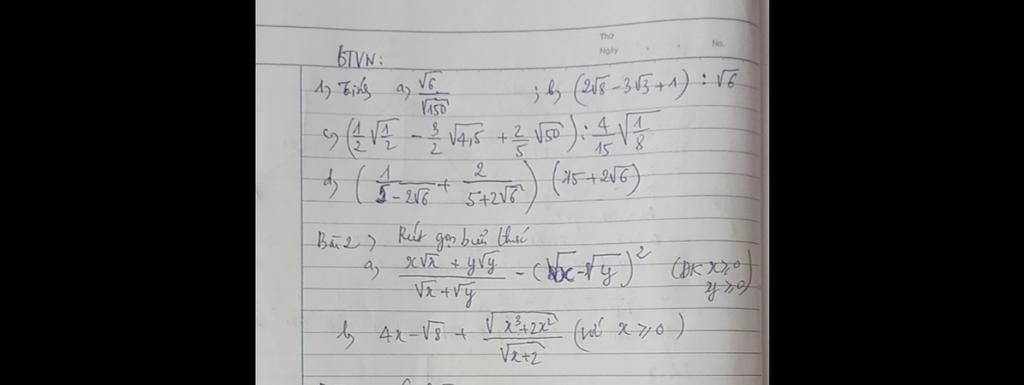 Thứ
Ngày No.
BTVN:
1, Tính a, √6/√150 ; b, (2√8 - 3√3 + 1) : √6
c, (1/2 √(1/2) - 3/2 √4,5 + 2/5 √50) : 4/15 √(1/8)
d, (1/(5 - 2√6) + 2/(5 + 2√6)) (15 + 2√6)
Bài 2, Rút gọn biểu thức
a, (x√x + y√y)/(√x + √y) - (√x - √y)² (ĐK x ≥ 0
y ≥ 0)
b, 4x - √8 + √(x³ + 2x²)/√(x + 2) (với x ≥ 0)